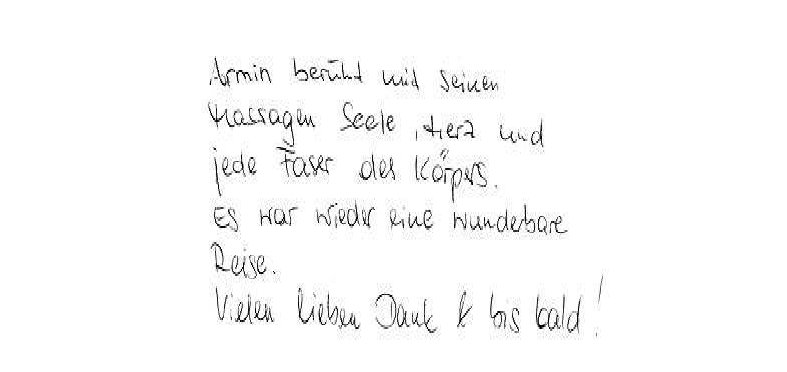 Armin berührt mit seinen
Massagen Seele, Herz und
jede Faser des Körpers.
Es war wieder eine wunderbare
Reise.
Vielen lieben Dank & bis bald!